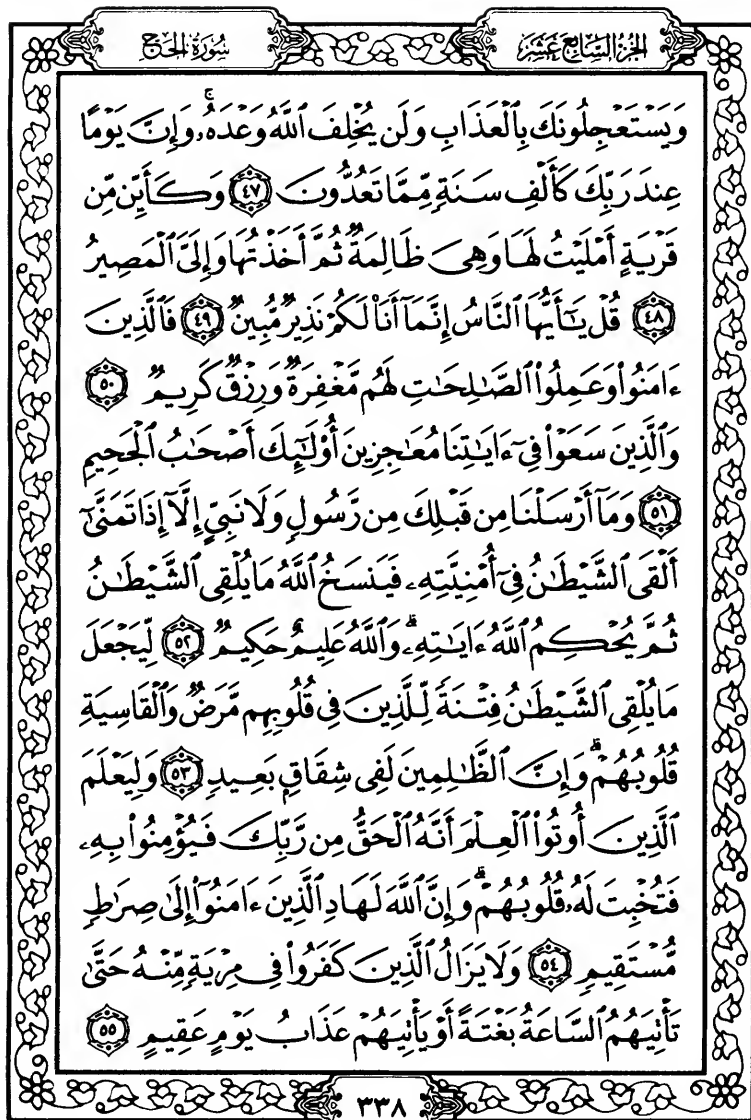 الجزء السابع عشر
سورة الحج
وَيَسْتَعْجِلُونَكَ بِٱلْعَذَابِ وَلَن يُخْلِفَ ٱللَّهُ وَعْدَهُۥۚ وَإِنَّ يَوْمًا
عِندَ رَبِّكَ كَأَلْفِ سَنَةٍ مِّمَّا تَعُدُّونَ ٤٧ وَكَأَيِّن مِّن
قَرْيَةٍ أَمْلَيْتُ لَهَا وَهِىَ ظَالِمَةٌ ثُمَّ أَخَذْتُهَا وَإِلَىَّ ٱلْمَصِيرُ
٤٨ قُلْ يَـٰٓأَيُّهَا ٱلنَّاسُ إِنَّمَآ أَنَا۠ لَكُمْ نَذِيرٌ مُّبِينٌ ٤٩ فَٱلَّذِينَ
ءَامَنُوا۟ وَعَمِلُوا۟ ٱلصَّـٰلِحَـٰتِ لَهُم مَّغْفِرَةٌ وَرِزْقٌ كَرِيمٌ ٥٠
وَٱلَّذِينَ سَعَوْا۟ فِىٓ ءَايَـٰتِنَا مُعَـٰجِزِينَ أُو۟لَـٰٓئِكَ أَصْحَـٰبُ ٱلْجَحِيمِ
٥١ وَمَآ أَرْسَلْنَا مِن قَبْلِكَ مِن رَّسُولٍ وَلَا نَبِىٍّ إِلَّآ إِذَا تَمَنَّىٰٓ
أَلْقَى ٱلشَّيْطَـٰنُ فِىٓ أُمْنِيَّتِهِۦ فَيَنسَخُ ٱللَّهُ مَا يُلْقِى ٱلشَّيْطَـٰنُ
ثُمَّ يُحْكِمُ ٱللَّهُ ءَايَـٰتِهِۦۗ وَٱللَّهُ عَلِيمٌ حَكِيمٌ ٥٢ لِّيَجْعَلَ
مَا يُلْقِى ٱلشَّيْطَـٰنُ فِتْنَةً لِّلَّذِينَ فِى قُلُوبِهِم مَّرَضٌ وَٱلْقَاسِيَةِ
قُلُوبُهُمْۗ وَإِنَّ ٱلظَّـٰلِمِينَ لَفِى شِقَاقٍۭ بَعِيدٍ ٥٣ وَلِيَعْلَمَ
ٱلَّذِينَ أُوتُوا۟ ٱلْعِلْمَ أَنَّهُ ٱلْحَقُّ مِن رَّبِّكَ فَيُؤْمِنُوا۟ بِهِۦ
فَتُخْبِتَ لَهُۥ قُلُوبُهُمْۗ وَإِنَّ ٱللَّهَ لَهَادِ ٱلَّذِينَ ءَامَنُوٓا۟ إِلَىٰ صِرَٰطٍ
مُّسْتَقِيمٍ ٥٤ وَلَا يَزَالُ ٱلَّذِينَ كَفَرُوا۟ فِى مِرْيَةٍ مِّنْهُ حَتَّىٰ
تَأْتِيَهُمُ ٱلسَّاعَةُ بَغْتَةً أَوْ يَأْتِيَهُمْ عَذَابُ يَوْمٍ عَقِيمٍ ٥٥
٣٣٨